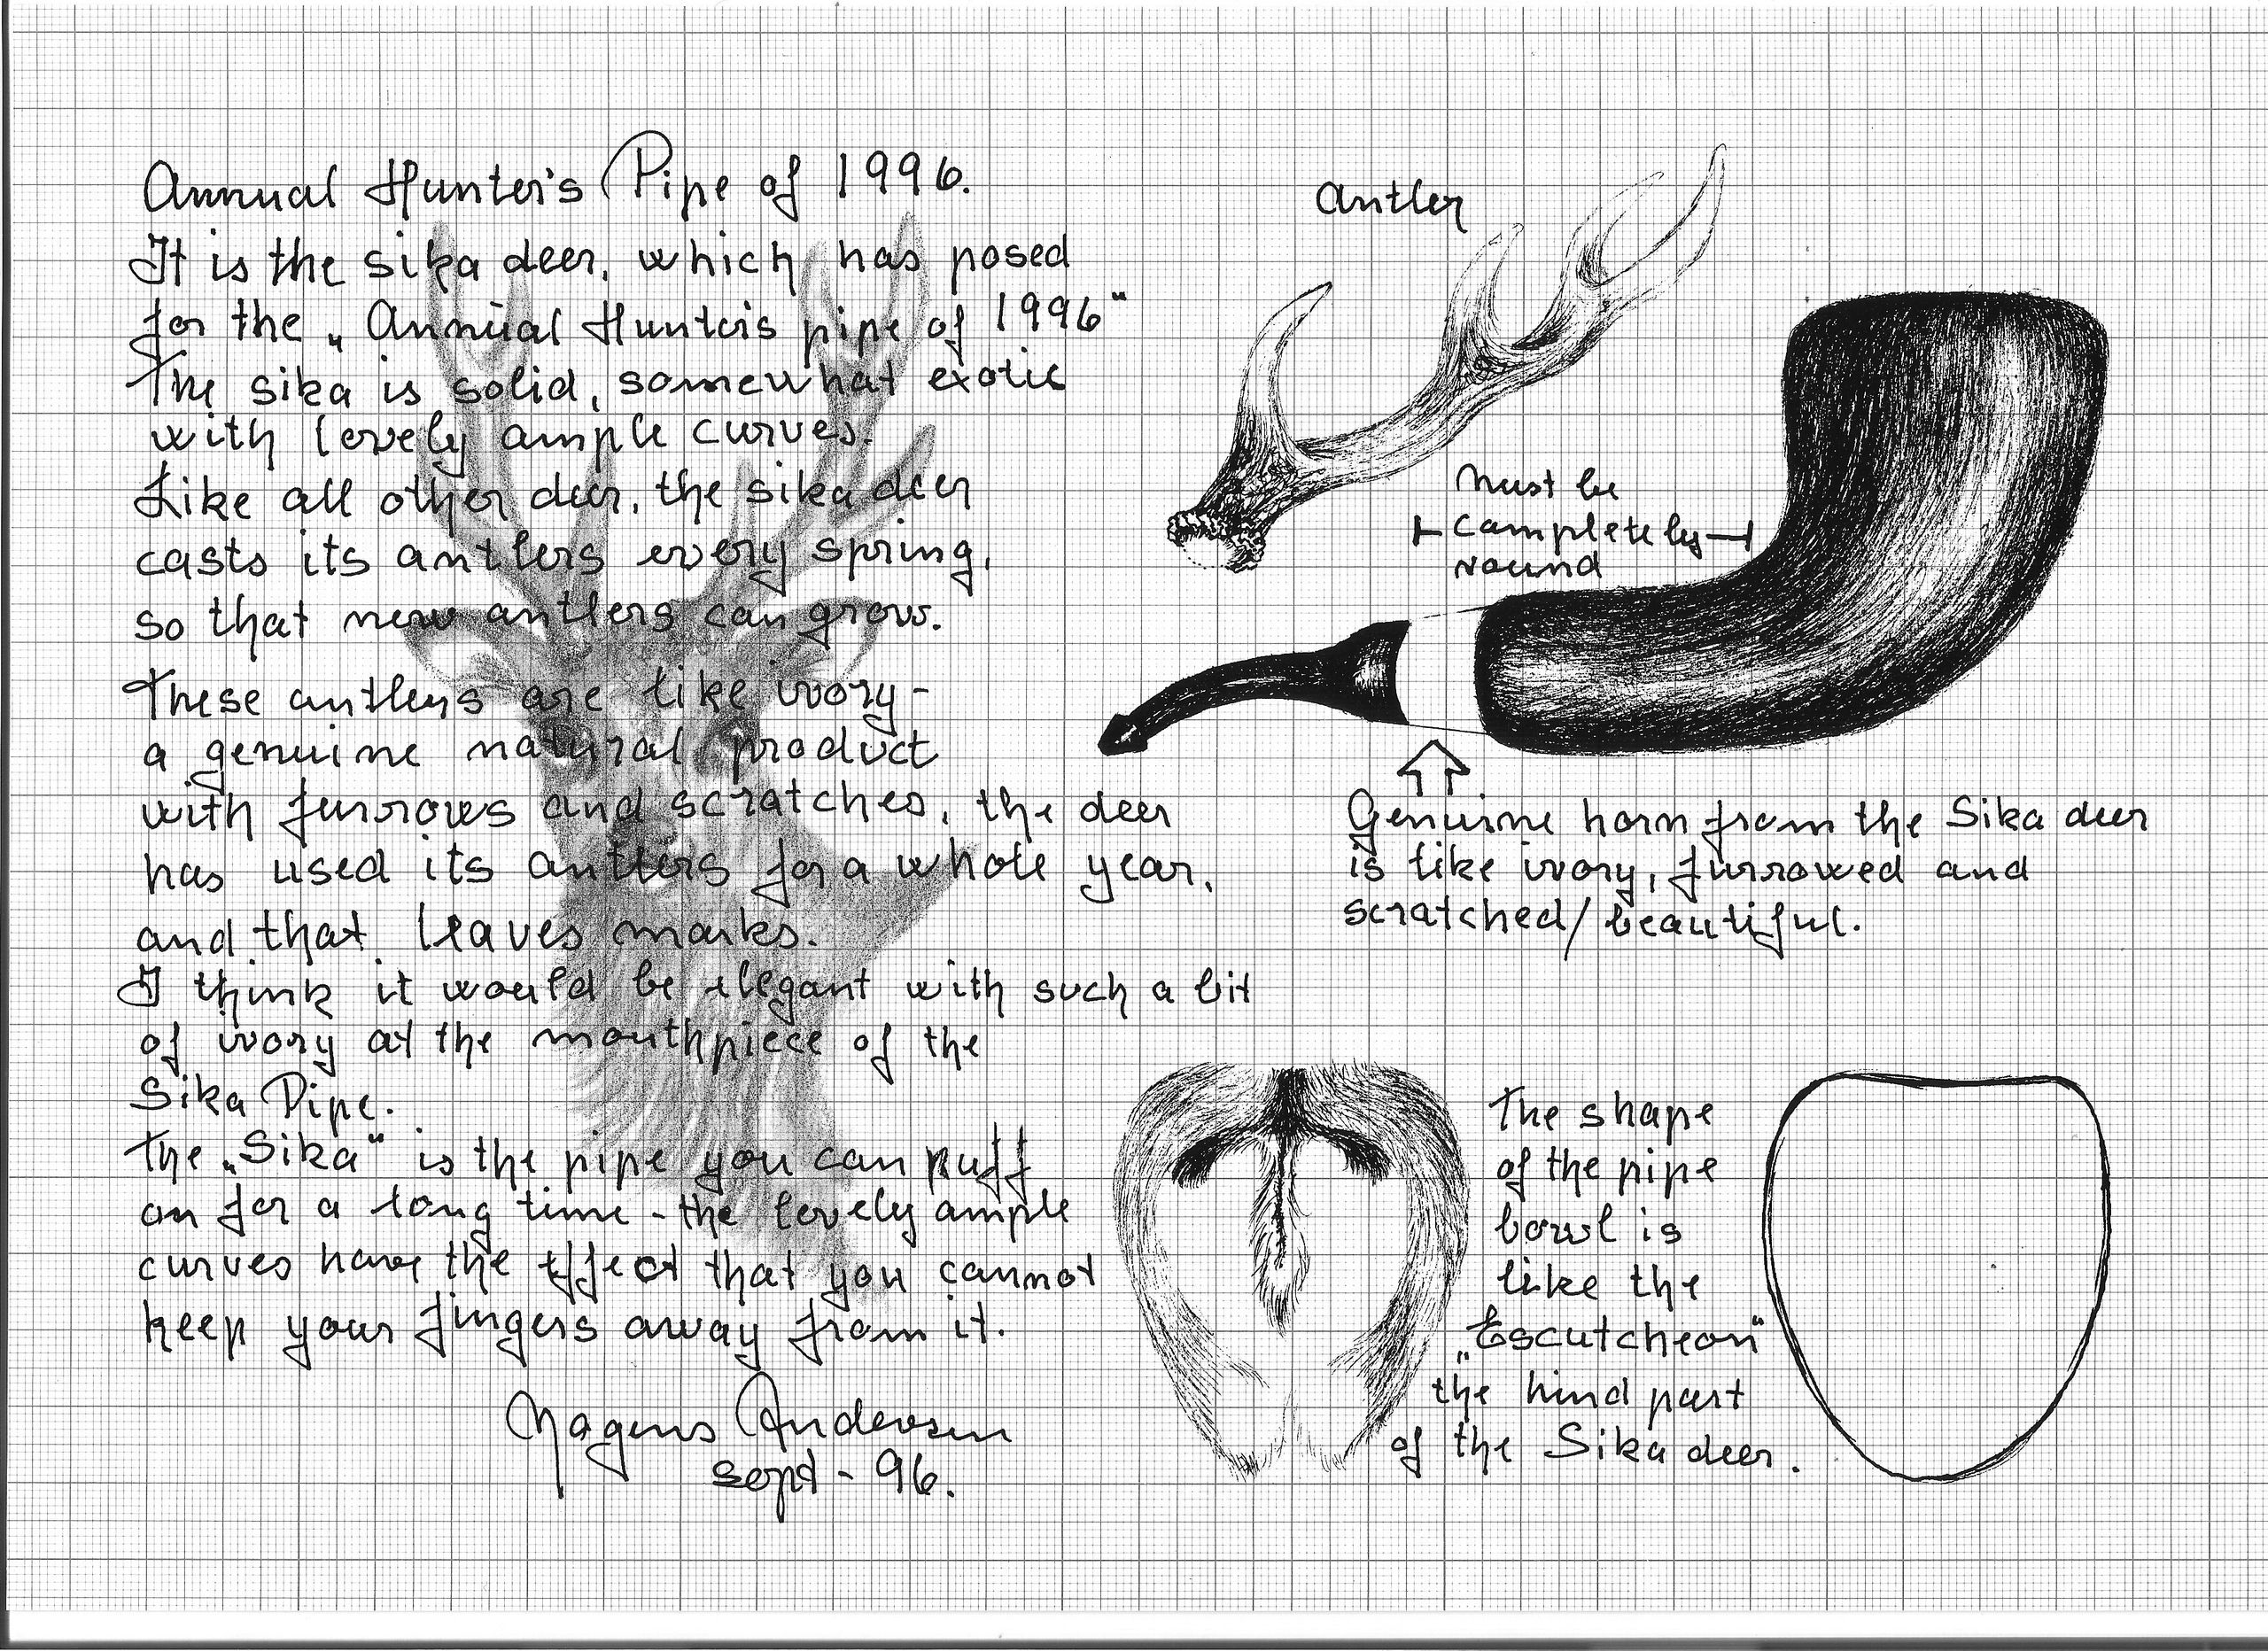 Annual Hunter's Pipe of 1996.
It is the sika deer, which has posed
for the „Annual Hunter's pipe of 1996"
The sika is solid, somewhat exotic
with lovely ample curves.
Like all other deer, the sika deer
casts its antlers every spring,
so that new antlers can grow.
These antlers are like ivory -
a genuine natural product
with furrows and scratches, the deer
has used its antlers for a whole year,
and that leaves marks.
I think it would be elegant with such a bit
of ivory at the mouthpiece of the
Sika Pipe.
The „Sika" is the pipe you can puff
on for a long time - the lovely ample
curves have the effect that you cannot
keep your fingers away from it.
Mogens Andersen
sept - 96.
antler
Must be
completely
round
Genuine horn from the Sika deer
is like ivory, furrowed and
scratched/beautiful.
The shape
of the pipe
bowl is
like the
„Escutcheon"
the hind part
of the Sika deer.